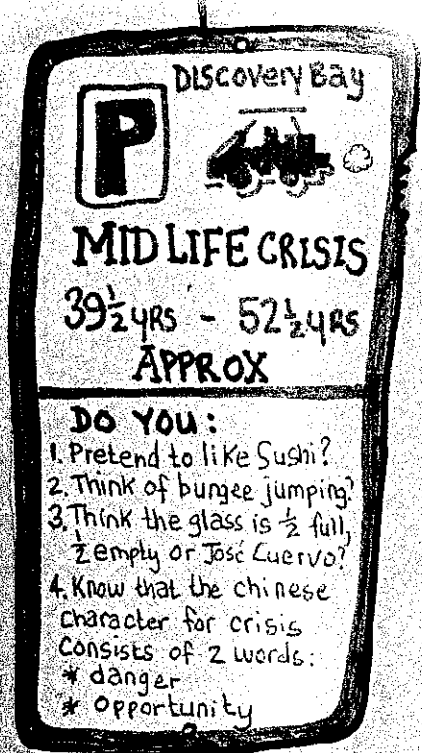 Discovery Bay
P
MID LIFE CRISIS
39½ yRS - 52½ yRS
APPROX
DO YOU:
1. Pretend to like Sushi?
2. Think of bungee jumping?
3. Think the glass is ½ full,
½ empty or José Cuervo?
4. Know that the chinese
character for crisis
consists of 2 words:
* danger
* opportunity